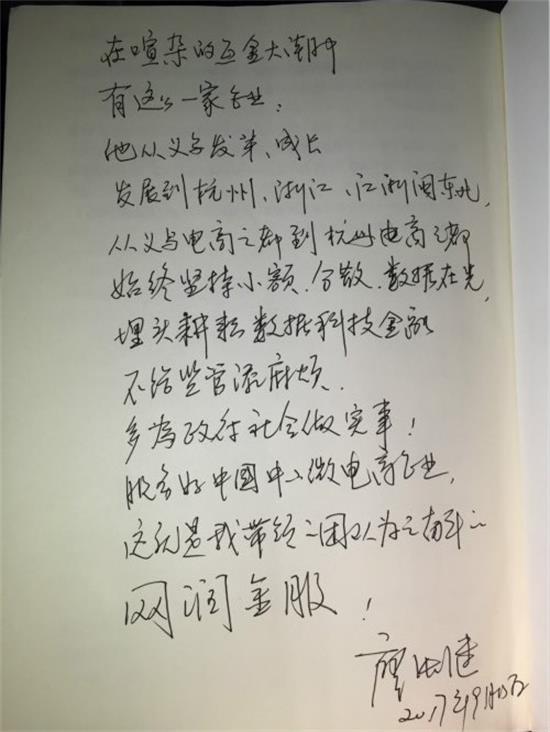 在喧杂的互金大潮中
有这么一家企业,
他从义乌发芽、成长
发展到杭州、浙江、江浙闽东北,
从义乌电商之都到杭州电商之都
始终坚持小额、分散、数据在先,
埋头耕耘数据科技金融
不给监管添麻烦,
多为政府社会做实事!
服务好中國中小微电商企业,
这就是我带领团队为之奋斗的
网润金服!
廖
2017年9月